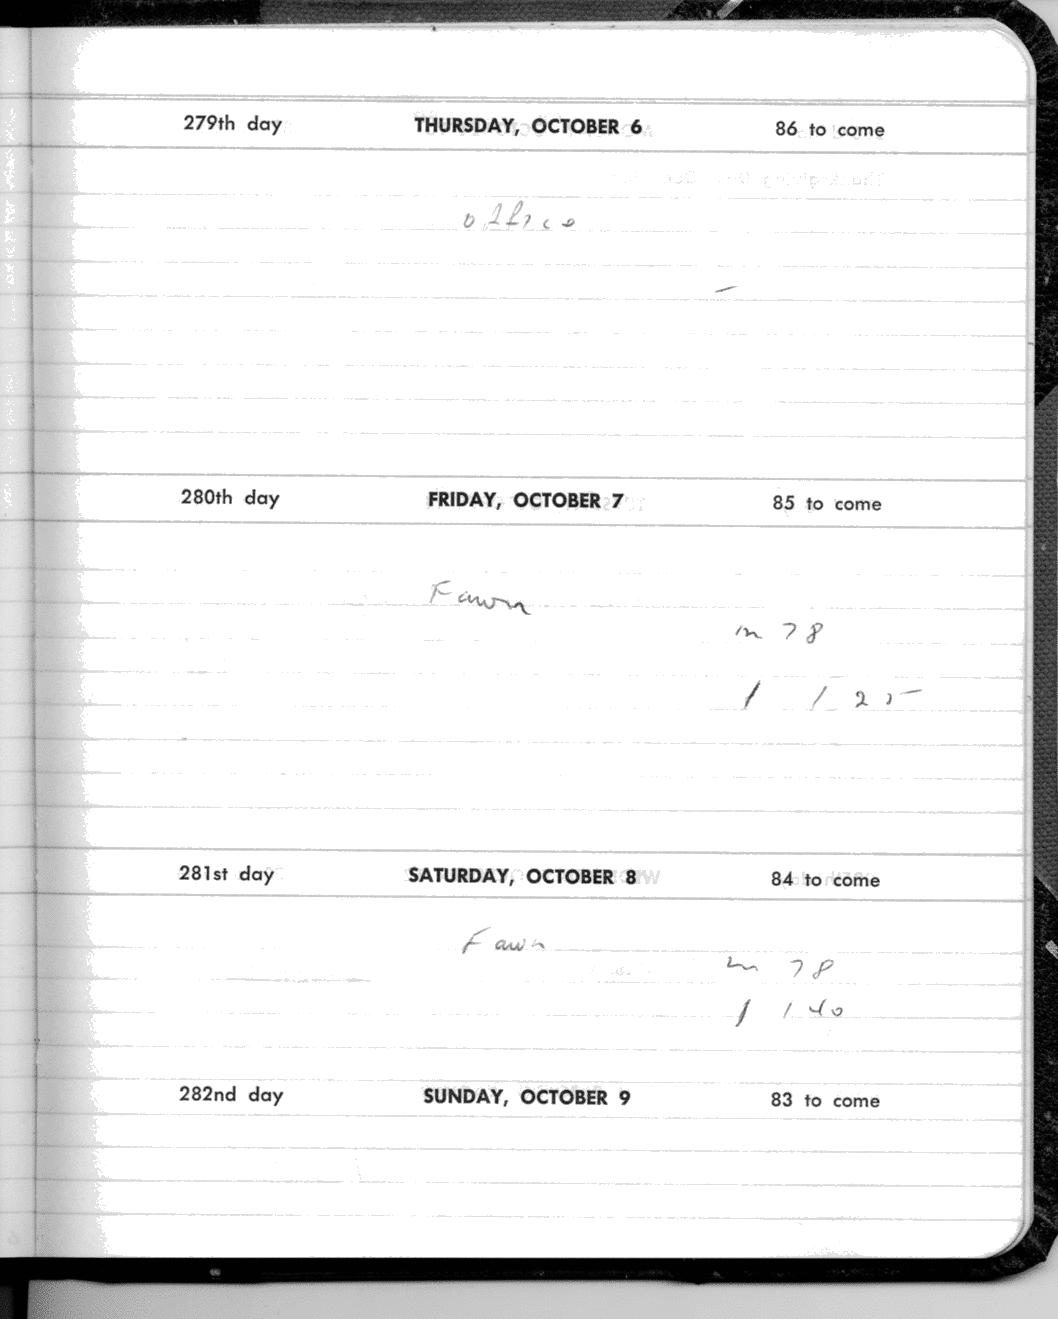 279th day THURSDAY, OCTOBER 6 86 to come
office
280th day FRIDAY, OCTOBER 7 85 to come
Fawn
m 78
1 125
281st day SATURDAY, OCTOBER 8 84 to come
Fawn
m 78
1 140
282nd day SUNDAY, OCTOBER 9 83 to come